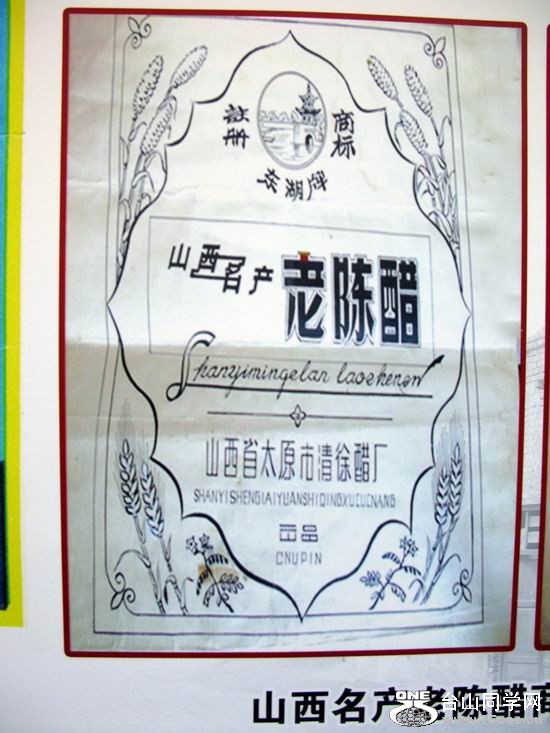 註册 商标
东湖牌
山西名产 老陈醋
Shanyimingelan
山西省太原市清徐醋厂
SHANYISHENGIAIYUANSHIQINGXUCUCNANG
出品
CNUPIN
山西名产老陈醋商
ONE 台山同学网